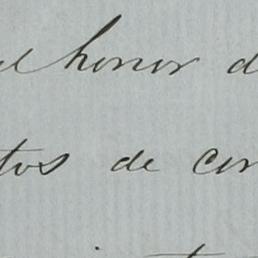 el honor d
tos de con